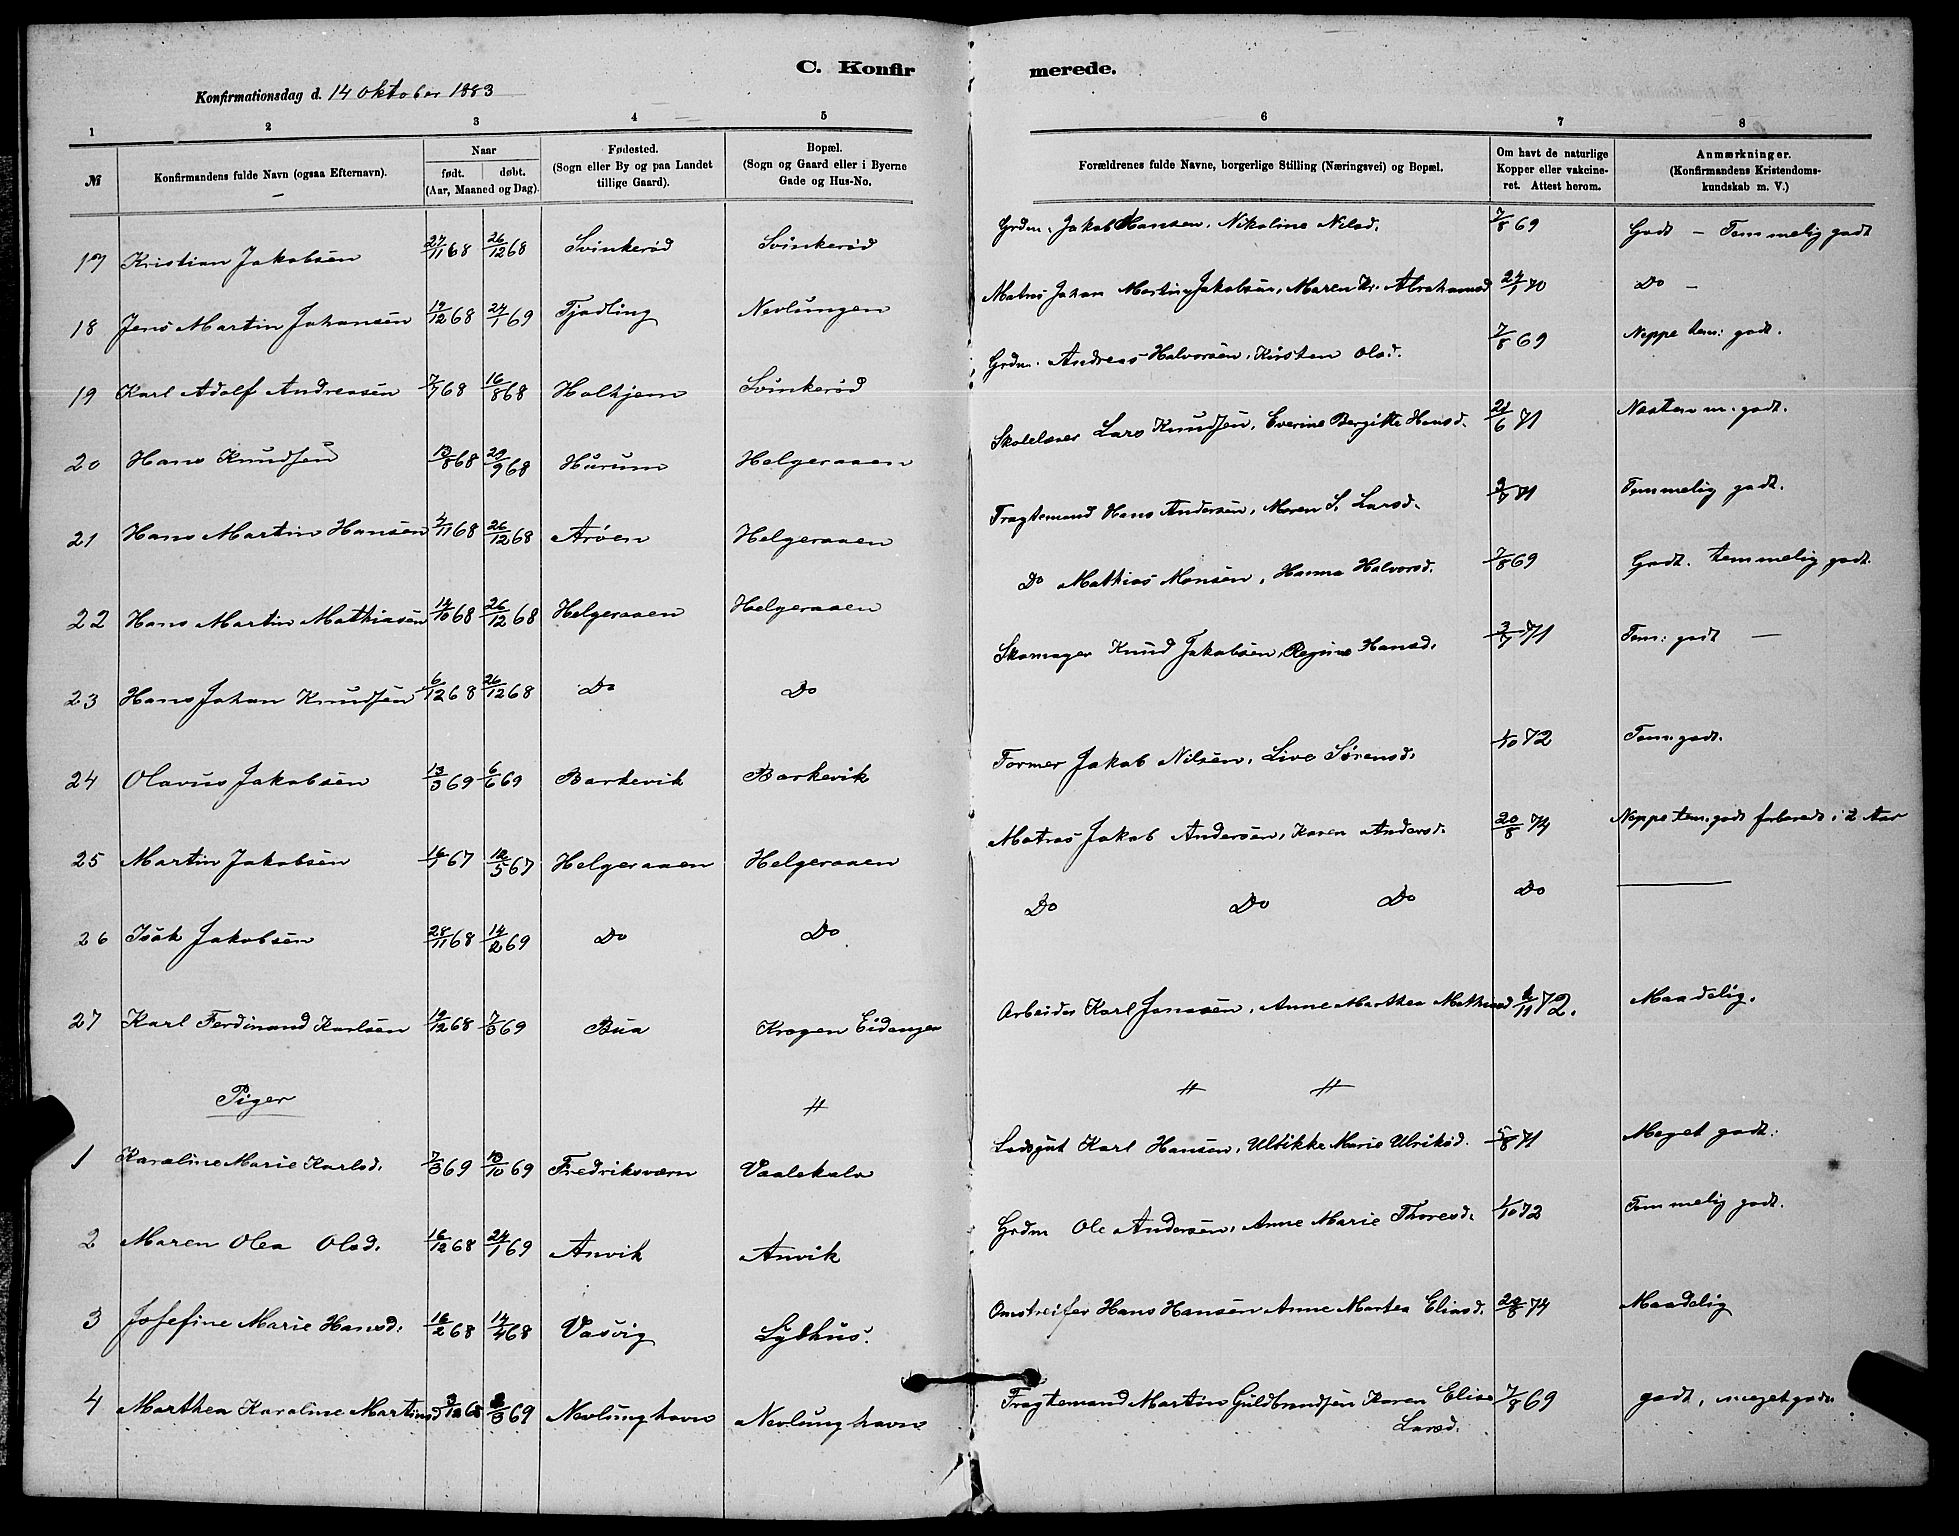 C. Konfirmerede.
Konfirmationsdag d. 14 Oktober 1883
1 2 3 4 5 6 7 8
№ Konfirmandens fulde Navn (ogsaa Efternavn). Naar født. døbt. (Aar, Maaned og Dag). Fødested. (Sogn eller By og paa Landet tillige Gaard). Bopæl. (Sogn og Gaard eller i Byerne Gade og Hus-No. Forældrenes fulde Navne, borgerlige Stilling (Næringsvei) og Bopæl. Om havt de naturlige Kopper eller vakcineret. Attest herom. Anmærkninger. (Konfirmandens Kristendomskundskab m. V.)
17 Kristian Jakobsen 27/11 68 26/12 68 Svinkerød Svinkerød Grdm. Jakob Hansen, Nikoline Nilsd. 7/8 69 Godt – Temmelig godt
18 Jens Martin Johansen 19/12 68 24/1 69 Tjødling Nevlungen Matros Johan Martin Jakobsen, Maren Kr. Abrahamsd 24/1 70 Do –
19 Karl Adolf Andreasen 7/7 68 16/8 68 Holhjem Svinkerød Grdm. Andreas Halvorsen, Kirsten Olsd. 7/8 69 Neppe tem: godt.
20 Hans Knudsen 13/8 68 20/9 68 Hurum Helgeraaen Skolelærer Lars Knudsen, Everine Bergitte Hansd. 24/6 71 Næsten m: godt.
21 Hans Martin Hansen 4/11 68 26/12 68 Arøen Helgeraaen Fragtemand Hans Andersen, Maren S. Larsd. 3/7 71 Temmelig godt.
22 Hans Martin Mathiasen 14/10 68 26/12 68 Helgeraaen Helgeraaen Do Mathias Monsen, Hanna Halvorsd. 7/8 69 Godt. temmelig godt.
23 Hans Johan Knudsen 6/12 68 26/12 68 Do Do Skomager Knud Jakobsen, Regine Hansd. 3/7 71 Tem: godt –
24 Olavus Jakobsen 13/3 69 6/6 69 Barkevik Barkevik Former Jakob Nilsen, Live Sørensd. 1/10 72 Tem: godt.
25 Martin Jakobsen 16/1 67 12/5 67 Helgeraaen Helgeraaen Matros Jakob Andersen, Karen Andersd. 20/8 74 Neppe tem: godt forbered i 2 Aar
26 Isak Jakobsen 28/11 68 14/2 69 Do Do Do Do Do Do —
27 Karl Ferdinand Karlsen 19/12 68 7/3 69 Bua Krogen Eidanger Arbeider Karl Jonasen, Anne Marthea Mathiasd /11 72. Maadelig.
Piger " " "
1 Karoline Marie Karlsd. 7/3 69 /10 69 Fredriksværn Vaalekalv Lodsgut Karl Hansen, Ulrikke Marie Ulriksd. 5/8 71 Meget godt:
2 Maren Olea Olsd. 16/12 68 24/1 69 Anvik Anvik Grdm Ole Andersen, Anne Marie Thoresd. 1/10 72 Temmelig godt.
3 Josefine Marie Hansd. 16/2 68 14/4 68 Vasvig Lydhus. Omstreifer Hans Hansen Anne Martea Eliasd. 20/8 74 Maadelig
4 Marthea Karoline Martinsd 3/12 68 /3 69 Nevlunghavn Nevlunghavn Fragtemand Martin Guldbrandsen Karen Elise Larsd. 7/8 69 godt, meget godt